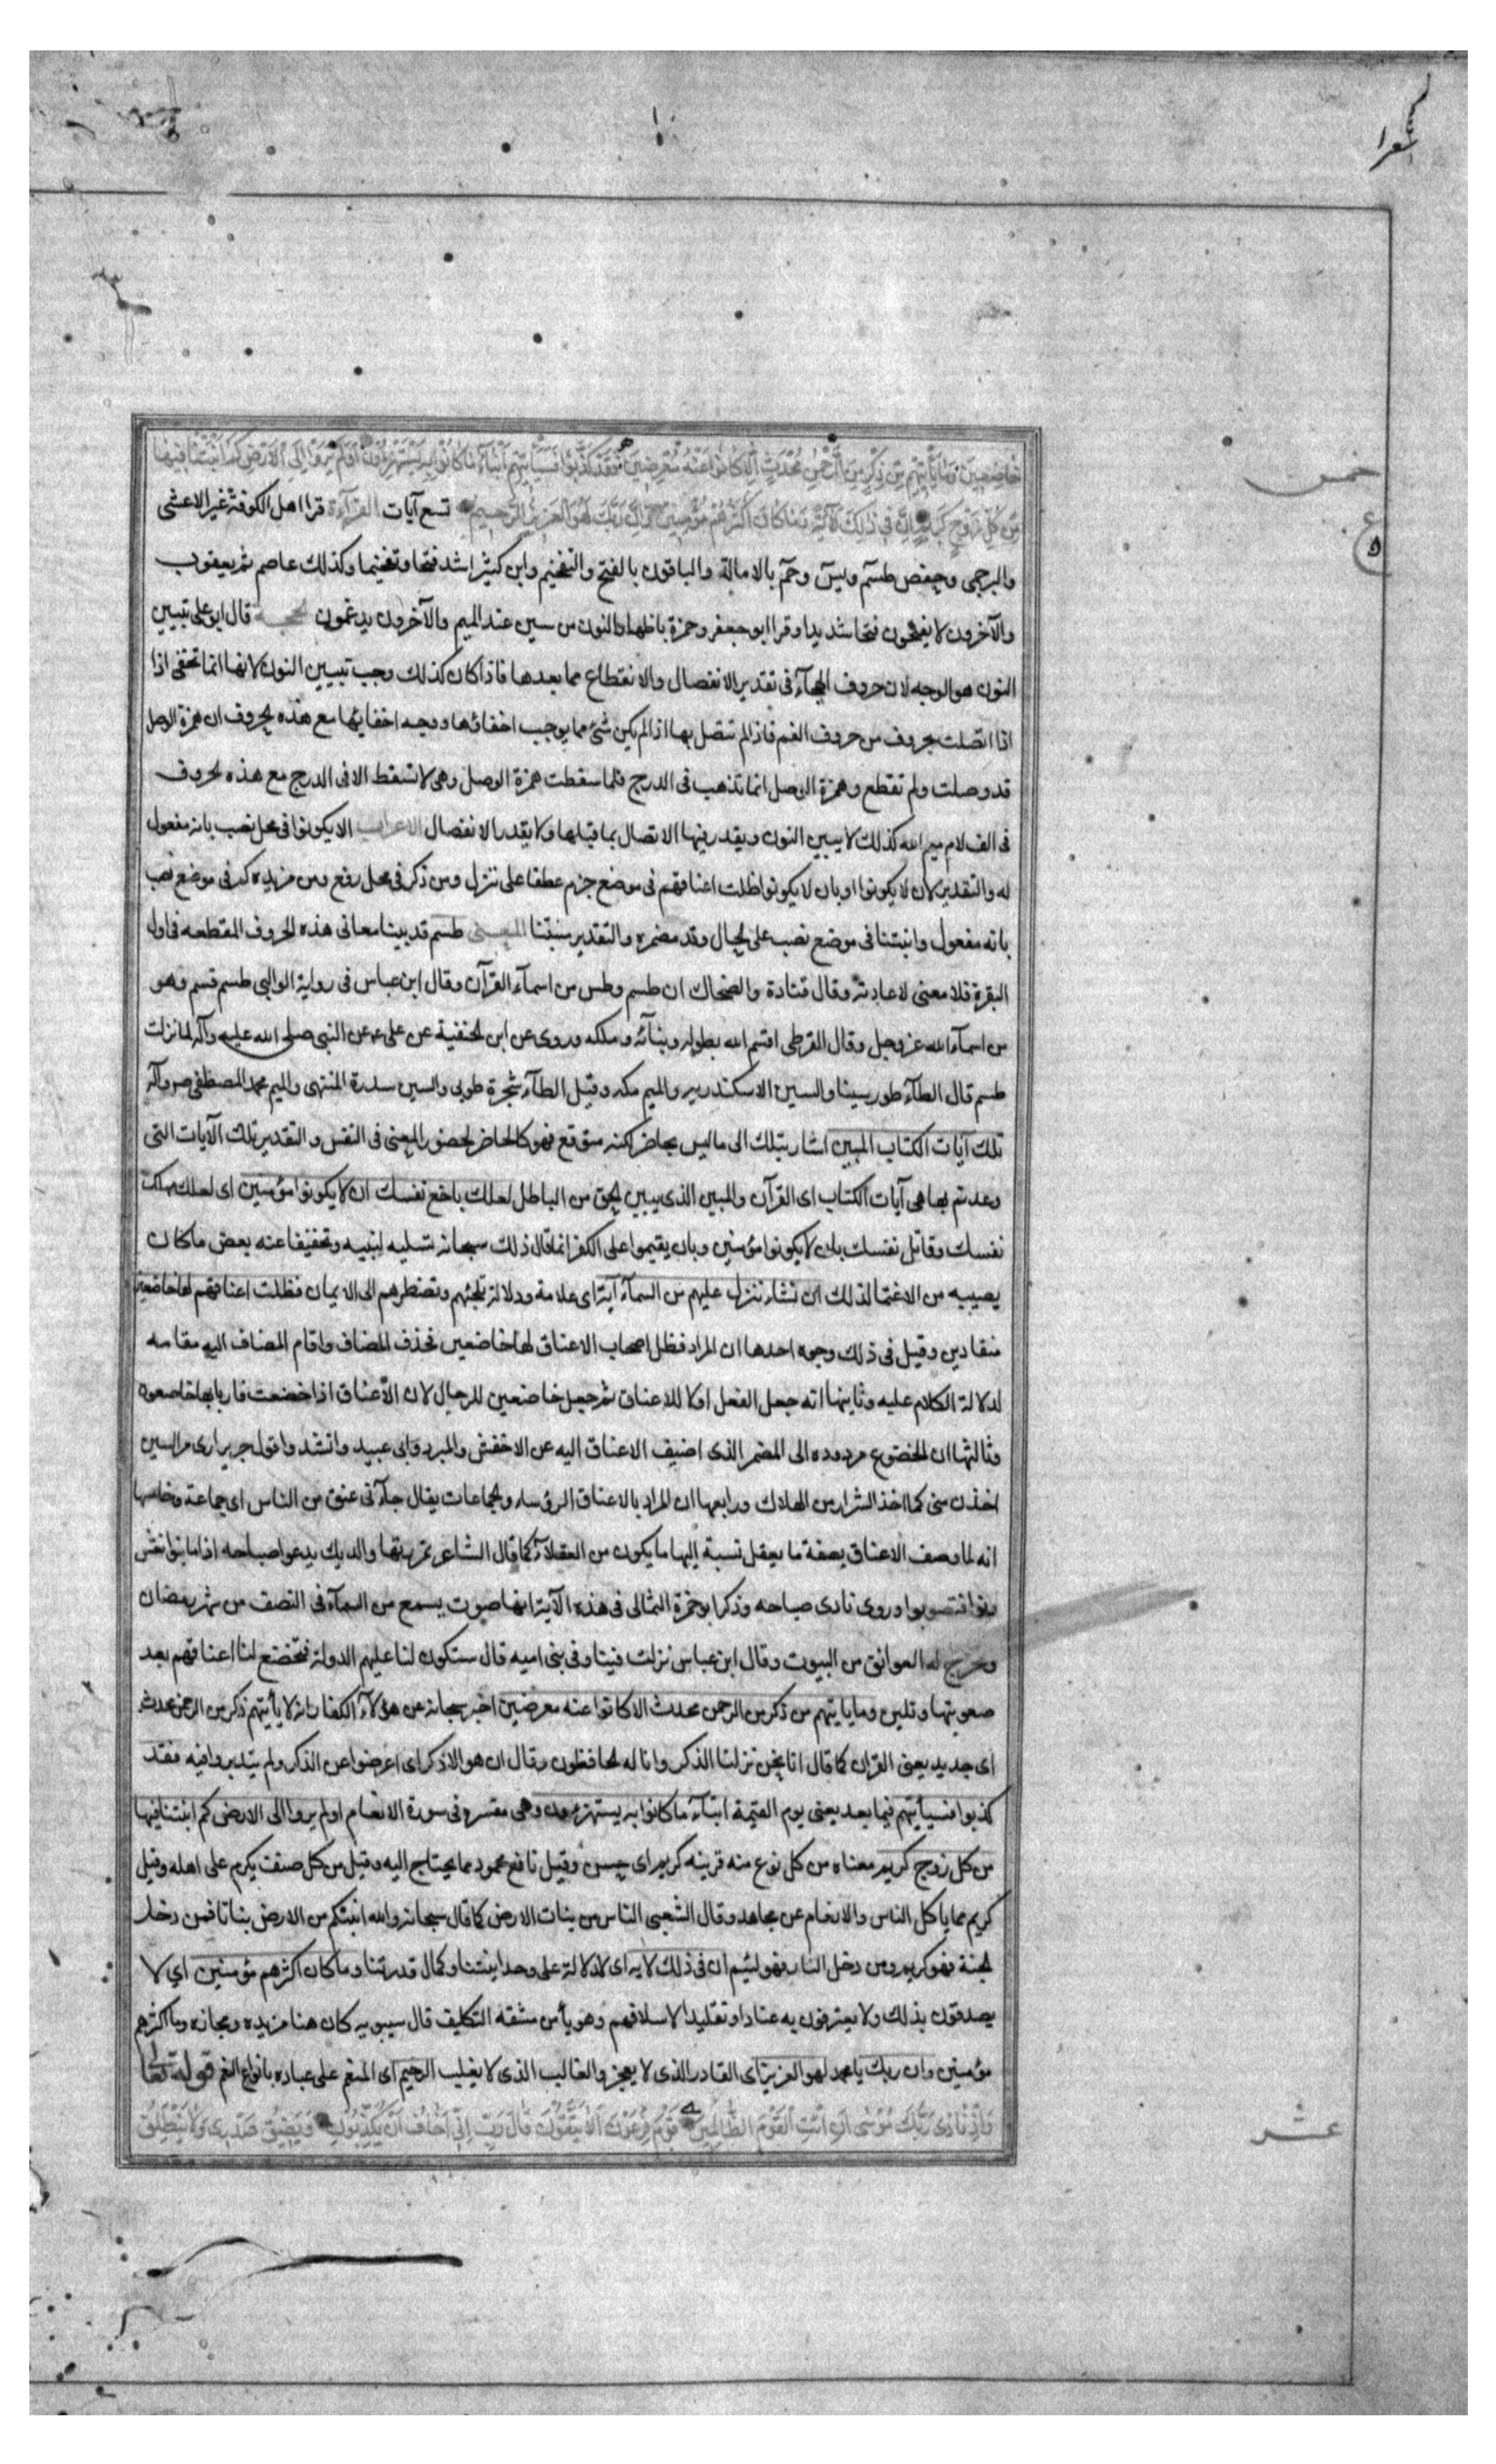 شعرا
خَاضِعِينَ وَمَا يَأْتِيهِمْ مِنْ ذِكْرٍ مِنَ الرَّحْمٰنِ مُحْدَثٍ إِلَّا كَانُوا عَنْهُ مُعْرِضِينَ فَقَدْ كَذَّبُوا فَسَيَأْتِيهِمْ أَنْبَاءُ مَا كَانُوا بِهِ يَسْتَهْزِؤُنَ أَوَلَمْ يَرَوْا إِلَى الْأَرْضِ كَمْ أَنْبَتْنَا فِيهَا
خمس
مِنْ كُلِّ زَوْجٍ كَرِيمٍ إِنَّ فِي ذٰلِكَ لَآيَةً وَمَا كَانَ أَكْثَرُهُمْ مُؤْمِنِينَ وَإِنَّ رَبَّكَ لَهُوَ الْعَزِيزُ الرَّحِيمُ تسع آيات القرآءة قرا اهل الكوفة غير الاعشى
ع
والبرجمى وحفص طسم ويس وحم بالامالة والباقون بالفتح والتفخيم وابن كثير اشد فتحا وتفخيما وكذلك عاصم ثم يعقوب
والآخرون لا يفتحون فتحا شديدا وقرا ابو جعفر وحمزة باظهار النون من سين عند الميم والآخرون يدغمون الحجة قال ابو على تبيين
النون هو الوجه لان حروف الهجآء فى تقدير الانفصال والانقطاع مما بعدها فاذا كان كذلك وجب تبيين النون لانها انما تخفى اذا
اذا اتصلت بحروف من حروف الفم فاذا لم تتصل بها اذا لم يكن شئ مما يوجب اخفاؤها ووجه اخفايها مع هذه الحروف ان همزة الوصل
قد وصلت ولم تقطع وهمزة الوصل انما تذهب فى الدرج فلما سقطت همزة الوصل وهى لا تسقط الا فى الدرج مع هذه الحروف
فى الف لام ميم الله كذلك لا يبين النون ويقدر فيها الاتصال بما قبلها ولا يقدر الانفصال الاعراب الا يكونوا فى محل نصب بانه مفعول
له والتقدير لان لا يكونوا او بان لا يكونوا ظلت اعناقهم فى موضع جزم عطفا على ننزل ومن ذكر فى محل رفع ومن مزيده كم فى موضع نصب
بانه مفعول وانبتنا فى موضع نصب على الحال وقد مضمره والتقدير منبتنا المعنى طسم قد بينا معانى هذه الحروف المقطعه فى اول
البقرة فلا معنى لاعادته وقال قتادة والضحاك ان طسم وطس من اسمآء القرآن وقال ابن عباس فى رواية الوالبى طسم قسم وهو
من اسمآء الله عز وجل وقال القرظى اقسم الله بطوله وسنآئه وملكه وروى عن ابن الحنفية عن على ع عن النبى صلى الله عليه وآله لما نزلت
طسم قال الطآء طور سينا والسين الاسكندريه والميم مكه وقيل الطآء شجرة طوبى والسين سدرة المنتهى والميم محمد المصطفى ص وآله
تلك آيات الكتاب المبين اشار بتلك الى ما ليس بحاضر لكنه متوقع فهو كالحاضر لحضور المعنى فى النفس والتقدير تلك الآيات التى
وعدتم بها هى آيات الكتاب اى القرآن والمبين الذى يبين الحق من الباطل لعلك باخع نفسك ان لا يكونوا مؤمنين اى لعلك مهلك
نفسك وقاتل نفسك بان لا يكونوا مؤمنين وبان يقيموا على الكفر انما قال ذلك سبحانه تسليه لنبيه وتخفيفا عنه بعض ما كان
يصيبه من الاغتمام لذلك ان نشاء ننزل عليهم من السمآء آية اى علامة ودلالة تلجئهم وتضطرهم الى الايمان فظلت اعناقهم لها خاضعين
منقادين وقيل فى ذلك وجوه احدها ان المراد فظل اصحاب الاعناق لها خاضعين فحذف المضاف واقام المضاف اليه مقامه
لدلالة الكلام عليه وثانيها انه جعل الفعل اولا للاعناق ثم جعل خاضعين للرجال لان الأعناق اذا خضعت فاربابها خاضعون
وثالثها ان الخضوع مردوده الى المضمر الذى اضيف الاعناق اليه عن الاخفش والمبرد وابى عبيد وانشدوا قول جرير ارى مر السنين
اخذن منى كما اخذ السرار من الهلاك ورابعها ان المراد بالاعناق الرؤساء والجماعات يقال جآء نى عنق من الناس اى جماعة وخامسها
انه لما وصف الاعناق بصفة ما يعقل نسبة اليها ما يكون من العقلآء كما قال الشاعر تمززتها والديك يدعوا صباحه اذا ما بنوا نعش
دنوا فتصوبوا وروى نادى صباحه وذكر ابو حمزة الثمالى فى هذه الآية انها صوت يسمع من السمآء فى النصف من شهر رمضان
وتخرج له العواتق من البيوت وقال ابن عباس نزلت فينا وفى بنى اميه قال ستكون لنا عليهم الدولة فتخضع لنا اعناقهم بعد
صعوبتها وتلين وما ياتيهم من ذكر من الرحمن محدث الا كانوا عنه معرضين اخبر سبحانه عن هؤلآء الكفار انه لا يأتيهم ذكر من الرحمن محدث
اى جديد يعنى القران كما قال انا نحن نزلنا الذكر وانا له لحافظون وقال ان هو الا ذكر اى اعرضوا عن الذكر ولم يتدبروا فيه فقد
كذبوا فسيأتيهم فيما بعد يعنى يوم القيمة انبآء ما كانوا به يستهزؤن وهى مفسره فى سورة الانعام اولم يروا الى الارض كم انبتنا فيها
من كل زوج كريم معناه من كل نوع منه قرينه كريم اى حسن وقيل نافع محمود مما يحتاج اليه وقيل من كل صنف يكرم على اهله وقيل
كريم مما ياكل الناس والانعام عن مجاهد وقال الشعبى الناس من نبات الارض كما قال سبحانه والله انبتكم من الارض نباتا فمن دخل
الجنة فهو كريم ومن دخل النار فهو لئيم ان فى ذلك لايه اى لدلالة على وحدانيتنا وكمال قدرتنا وما كان اكثرهم مؤمنين اي لا
يصدقون بذلك ولا يعترفون به عنادا وتقليدا لاسلافهم وهو يأس مشقه التكليف قال سيبويه كان هنا مزيده ومجازه وما اكثرهم
مؤمنين وان ربك يا محمد لهو العزيز اى القادر الذى لا يعجز والغالب الذى لا يغلب الرحيم اى المنعم على عباده بانواع النعم قوله تعا
وَإِذْ نَادَى رَبُّكَ مُوسَى أَنِ ائْتِ الْقَوْمَ الظَّالِمِينَ قَوْمَ فِرْعَوْنَ أَلَا يَتَّقُونَ قَالَ رَبِّ إِنِّي أَخَافُ أَنْ يُكَذِّبُونِ وَيَضِيقُ صَدْرِي وَلَا يَنْطَلِقُ
عشر